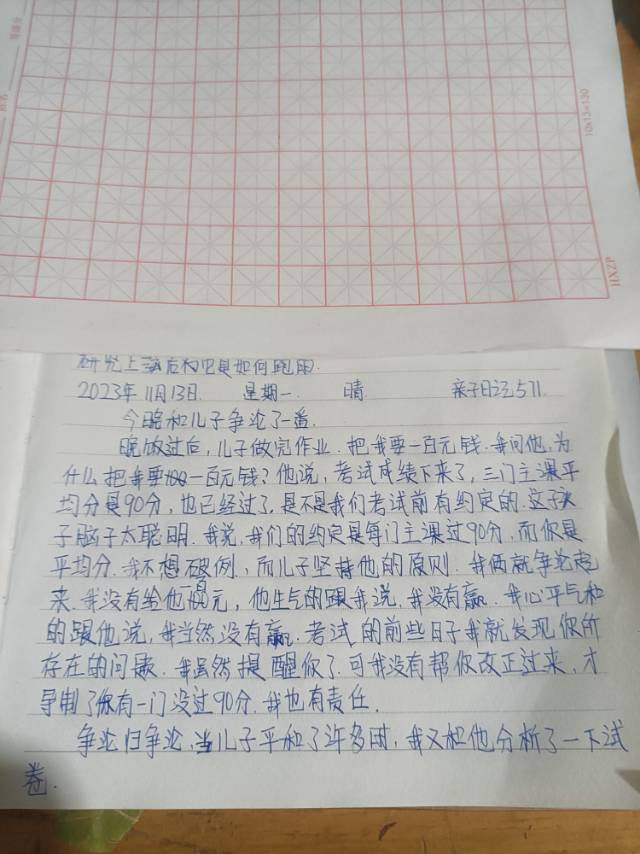 10×13=130
HXZP
研究上 落后 如何跑用.
2023年11月13日. 星期一. 晴. 亲子日记571.
今晚和儿子争论了一番.
晚饭过后,儿子做完作业.把我要一百元钱.我问他,为
什么把我要一百元钱?他说,考试成绩下来了,三门主课平
均分是90分,也已经过了,是不是我们考试前有约定的.这孩
子脑子太聪明.我说,我们的约定是每门主课过90分,而你是
平均分.我不想破例,而儿子坚持他的原则.我俩就争论起
来.我没有给他一百元,他生气的跟我说,我没有赢.我心平气和
的跟他说,我当然没有赢.考试的前些日子我就发现你所
存在的问题.我虽然提醒你了.可我没有帮你改正过来,才
导制了你有一门没过90分.我也有责任.
争论归争论,当儿子平和了许多时,我又和他分析了一下试
卷.